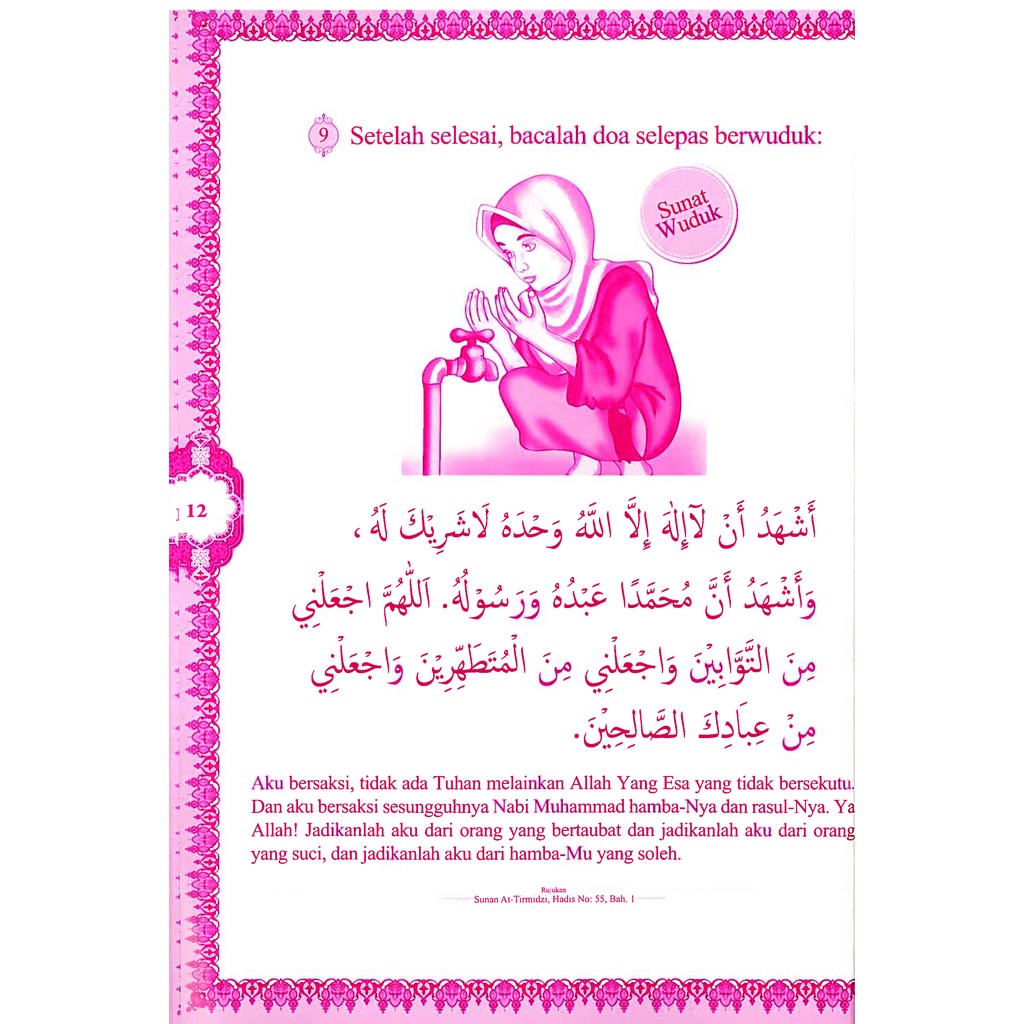 9 Setelah selesai, bacalah doa selepas berwuduk:
Sunat
Wuduk
12
أَشْهَدُ أَنْ لَآإِلٰهَ إِلَّا اللَّهُ وَحْدَهُ لَاشَرِيْكَ لَهُ ،
وَأَشْهَدُ أَنَّ مُحَمَّدًا عَبْدُهُ وَرَسُوْلُهُ. اَللّٰهُمَّ اجْعَلْنِي
مِنَ التَّوَّابِيْنَ وَاجْعَلْنِي مِنَ الْمُتَطَهِّرِيْنَ وَاجْعَلْنِي
مِنْ عِبَادِكَ الصَّالِحِيْنَ.
Aku bersaksi, tidak ada Tuhan melainkan Allah Yang Esa yang tidak bersekutu.
Dan aku bersaksi sesungguhnya Nabi Muhammad hamba-Nya dan rasul-Nya. Ya
Allah! Jadikanlah aku dari orang yang bertaubat dan jadikanlah aku dari orang
yang suci, dan jadikanlah aku dari hamba-Mu yang soleh.
Rujukan
Sunan At-Tirmidzi, Hadis No: 55, Bah. 1